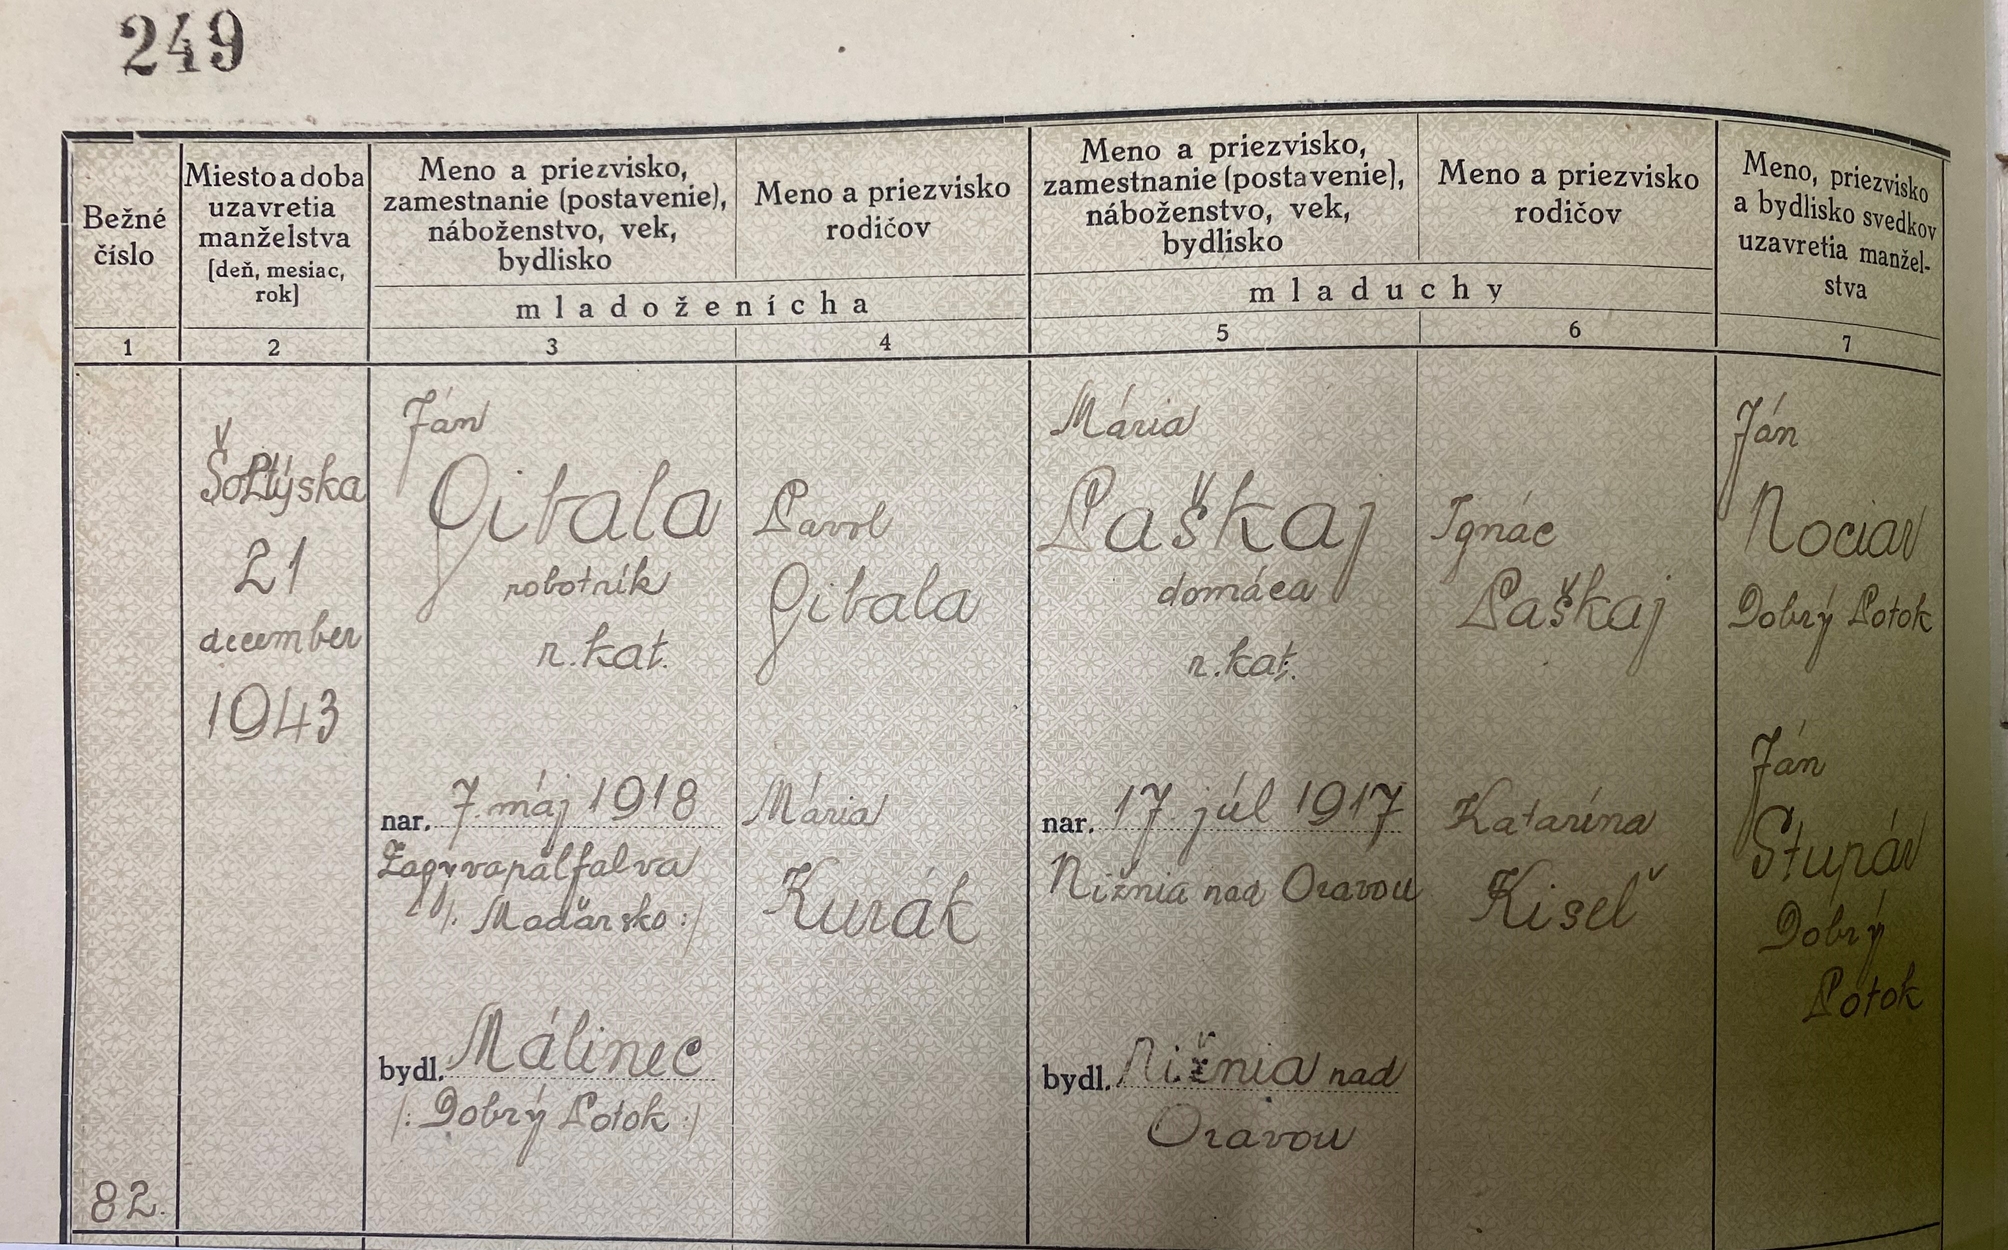 249
Bežné
číslo
Miesto a doba
uzavretia
manželstva
[deň, mesiac,
rok]
Meno a priezvisko,
zamestnanie (postavenie),
náboženstvo, vek,
bydlisko
Meno a priezvisko
rodičov
mladoženícha
Meno a priezvisko,
zamestnanie (postavenie),
náboženstvo, vek,
bydlisko
Meno a priezvisko
rodičov
mladuchy
Meno, priezvisko
a bydlisko svedkov
uzavretia manžel-
stva
1
2
3
4
5
6
7
82.
V
Šoltýska
21
december
1943
Ján
Gibala
robotník
r. kat.
nar. 7. máj 1918
Zagyvapálfalva
/: Maďarsko :/
bydl. Málinec
/: Dobrý Potok :/
Pavol
Gibala
Mária
Kurák
Mária
Paškaj
domáca
r. kat.
nar. 17. júl 1917
Nižnia nad Oravou
bydl. Nižnia nad
Oravou
Ignác
Paškaj
Katarína
Kiseľ
Ján
Nociar
Dobrý Potok
Ján
Stupár
Dobrý
Potok